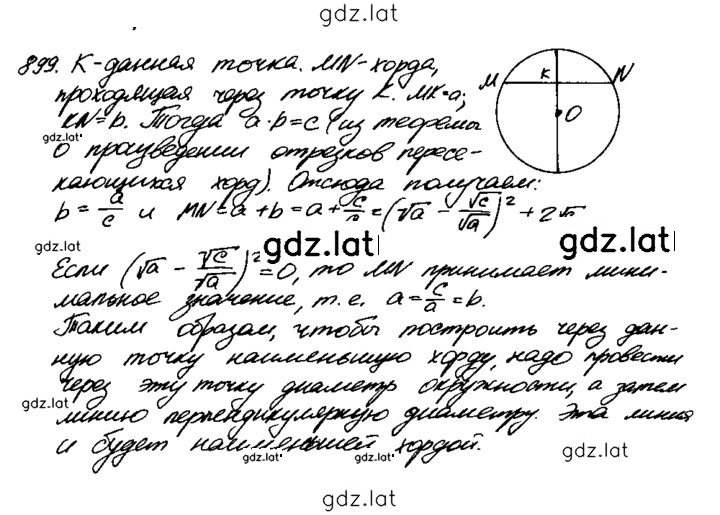 gdz.lat
899. К-данная точка. MN-хорда,
проходящая через точку К. MK=a;
KN=b. Тогда a·b=c (из теоремы
gdz.lat
о произведении отрезков пересе-
кающихся хорд). Отсюда получаем:
b=a/c и MN=a+b=a+c/a=(√a - √c/√a)²+2√c
gdz.lat
gdz.lat
gdz.lat
Если (√a - √c/√a)²=0, то MN принимает мини-
мальное значение, т.е. a=c/a=b.
Таким образом, чтобы построить через дан-
ную точку наименьшую хорду, надо провести
через эту точку диаметр окружности, а затем
gdz.lat
линию перпендикулярную диаметру. Эта линия
и будет наименьшей хордой.
gdz.lat
gdz.lat
gdz.lat
gdz.lat
M K N
O